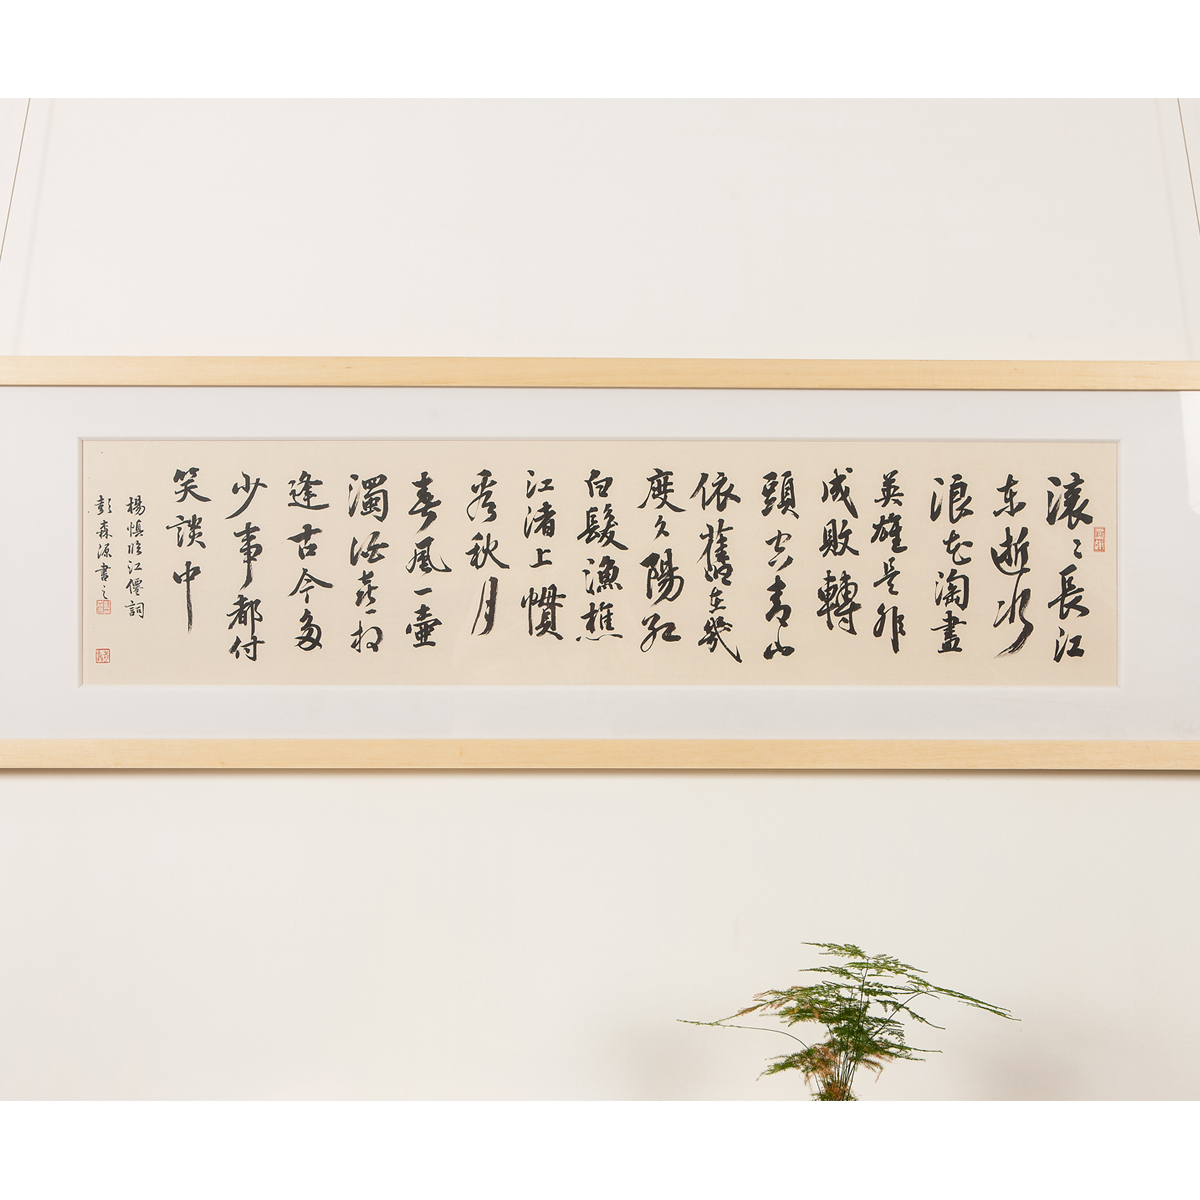 滚〻長江
东逝水
浪花淘盡
英雄是非
成敗轉
頭空青山
依舊在幾
度夕陽紅
白髮漁樵
江渚上慣
看秋月
春風一壺
濁酒喜相
逢古今多
少事都付
笑談中
楊慎臨江僊詞
彭森源書之